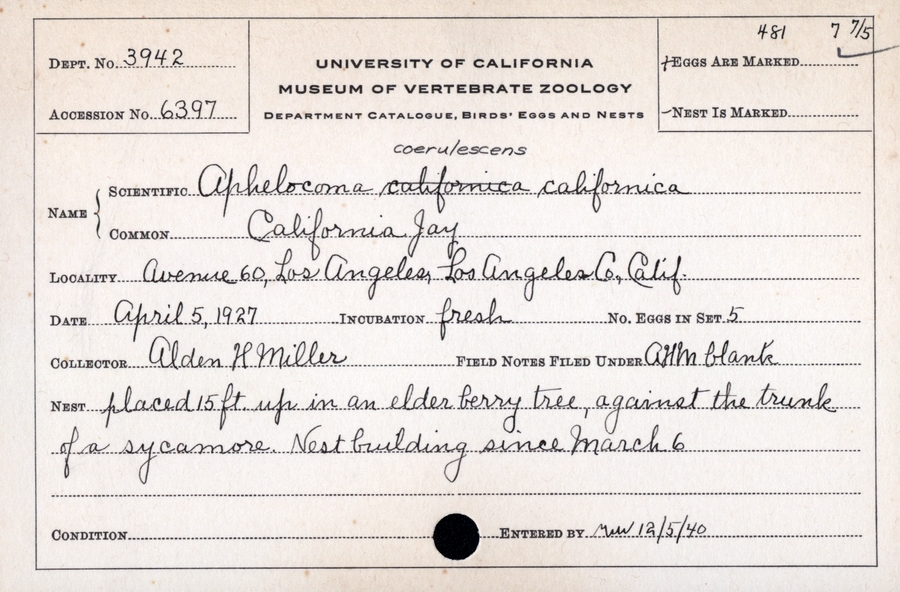 481 7 7/5
Dept. No. 3942
UNIVERSITY OF CALIFORNIA
Eggs Are Marked
MUSEUM OF VERTEBRATE ZOOLOGY
Accession No. 6397
Department Catalogue, Birds' Eggs and Nests
Nest Is Marked
coerulescens
Name { Scientific Aphelocoma californica californica
Common California Jay
Locality Avenue 60, Los Angeles, Los Angeles Co., Calif.
Date April 5, 1927 Incubation fresh No. Eggs in Set 5
Collector Alden H Miller Field Notes Filed Under AHM blank
Nest placed 15 ft. up in an elder berry tree, against the trunk
of a sycamore. Nest building since March 6
Condition Entered by 12/5/40